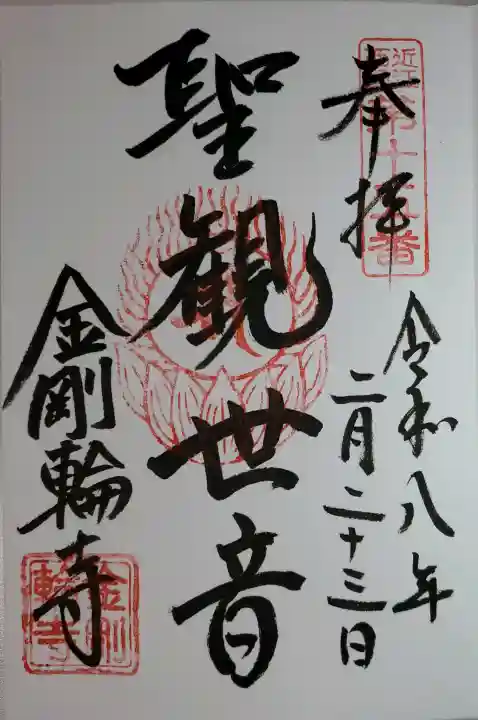 奉拝
近江西国第十五番
令和八年
二月二十三日
聖観世音
金剛輪寺
金剛輪寺